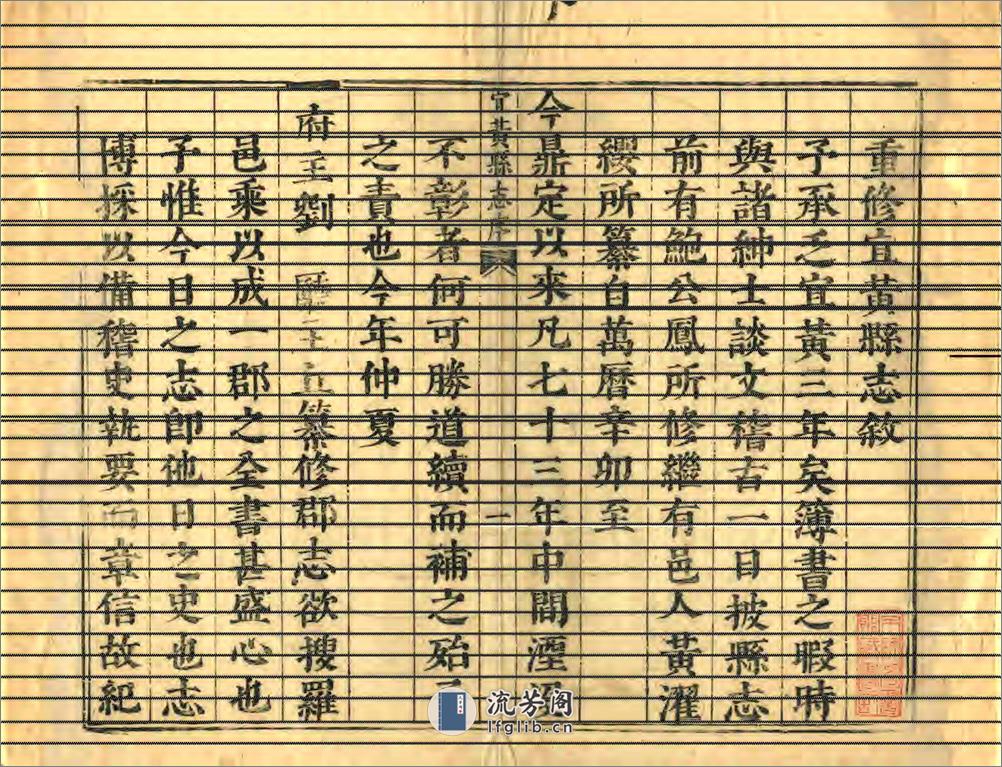 重修宜黃縣志敘
予承乏宜黃三年矣簿書之暇時
與諸紳士談文稽古一日披縣志
前有鮑公鳳所修繼有邑人黃濯
纓所纂自萬曆辛卯至
今鼎定以來凡七十三年中間湮沒
宜黃縣志序 一
不彰者何可勝道續而補之殆予
之責也今年仲夏
府王劉 纂修郡志欲搜羅
邑乘以成一郡之全書甚盛心也
予惟今日之志即他日之史也志
博採以備稽史執要而章信故紀
流芳阁
lfglib.cn